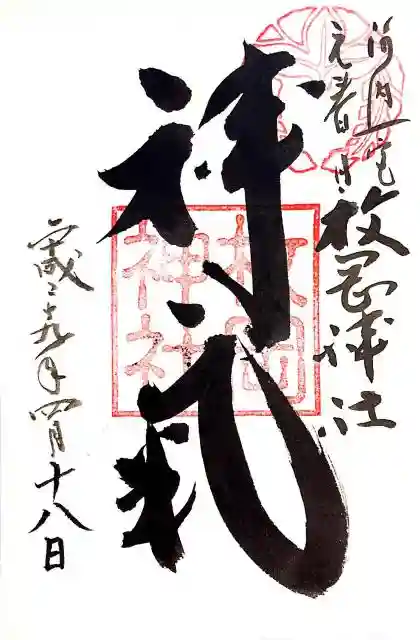 河内一宮
元春日
枚岡神社
神氣
枚岡
神社
平成二十九年四月十八日